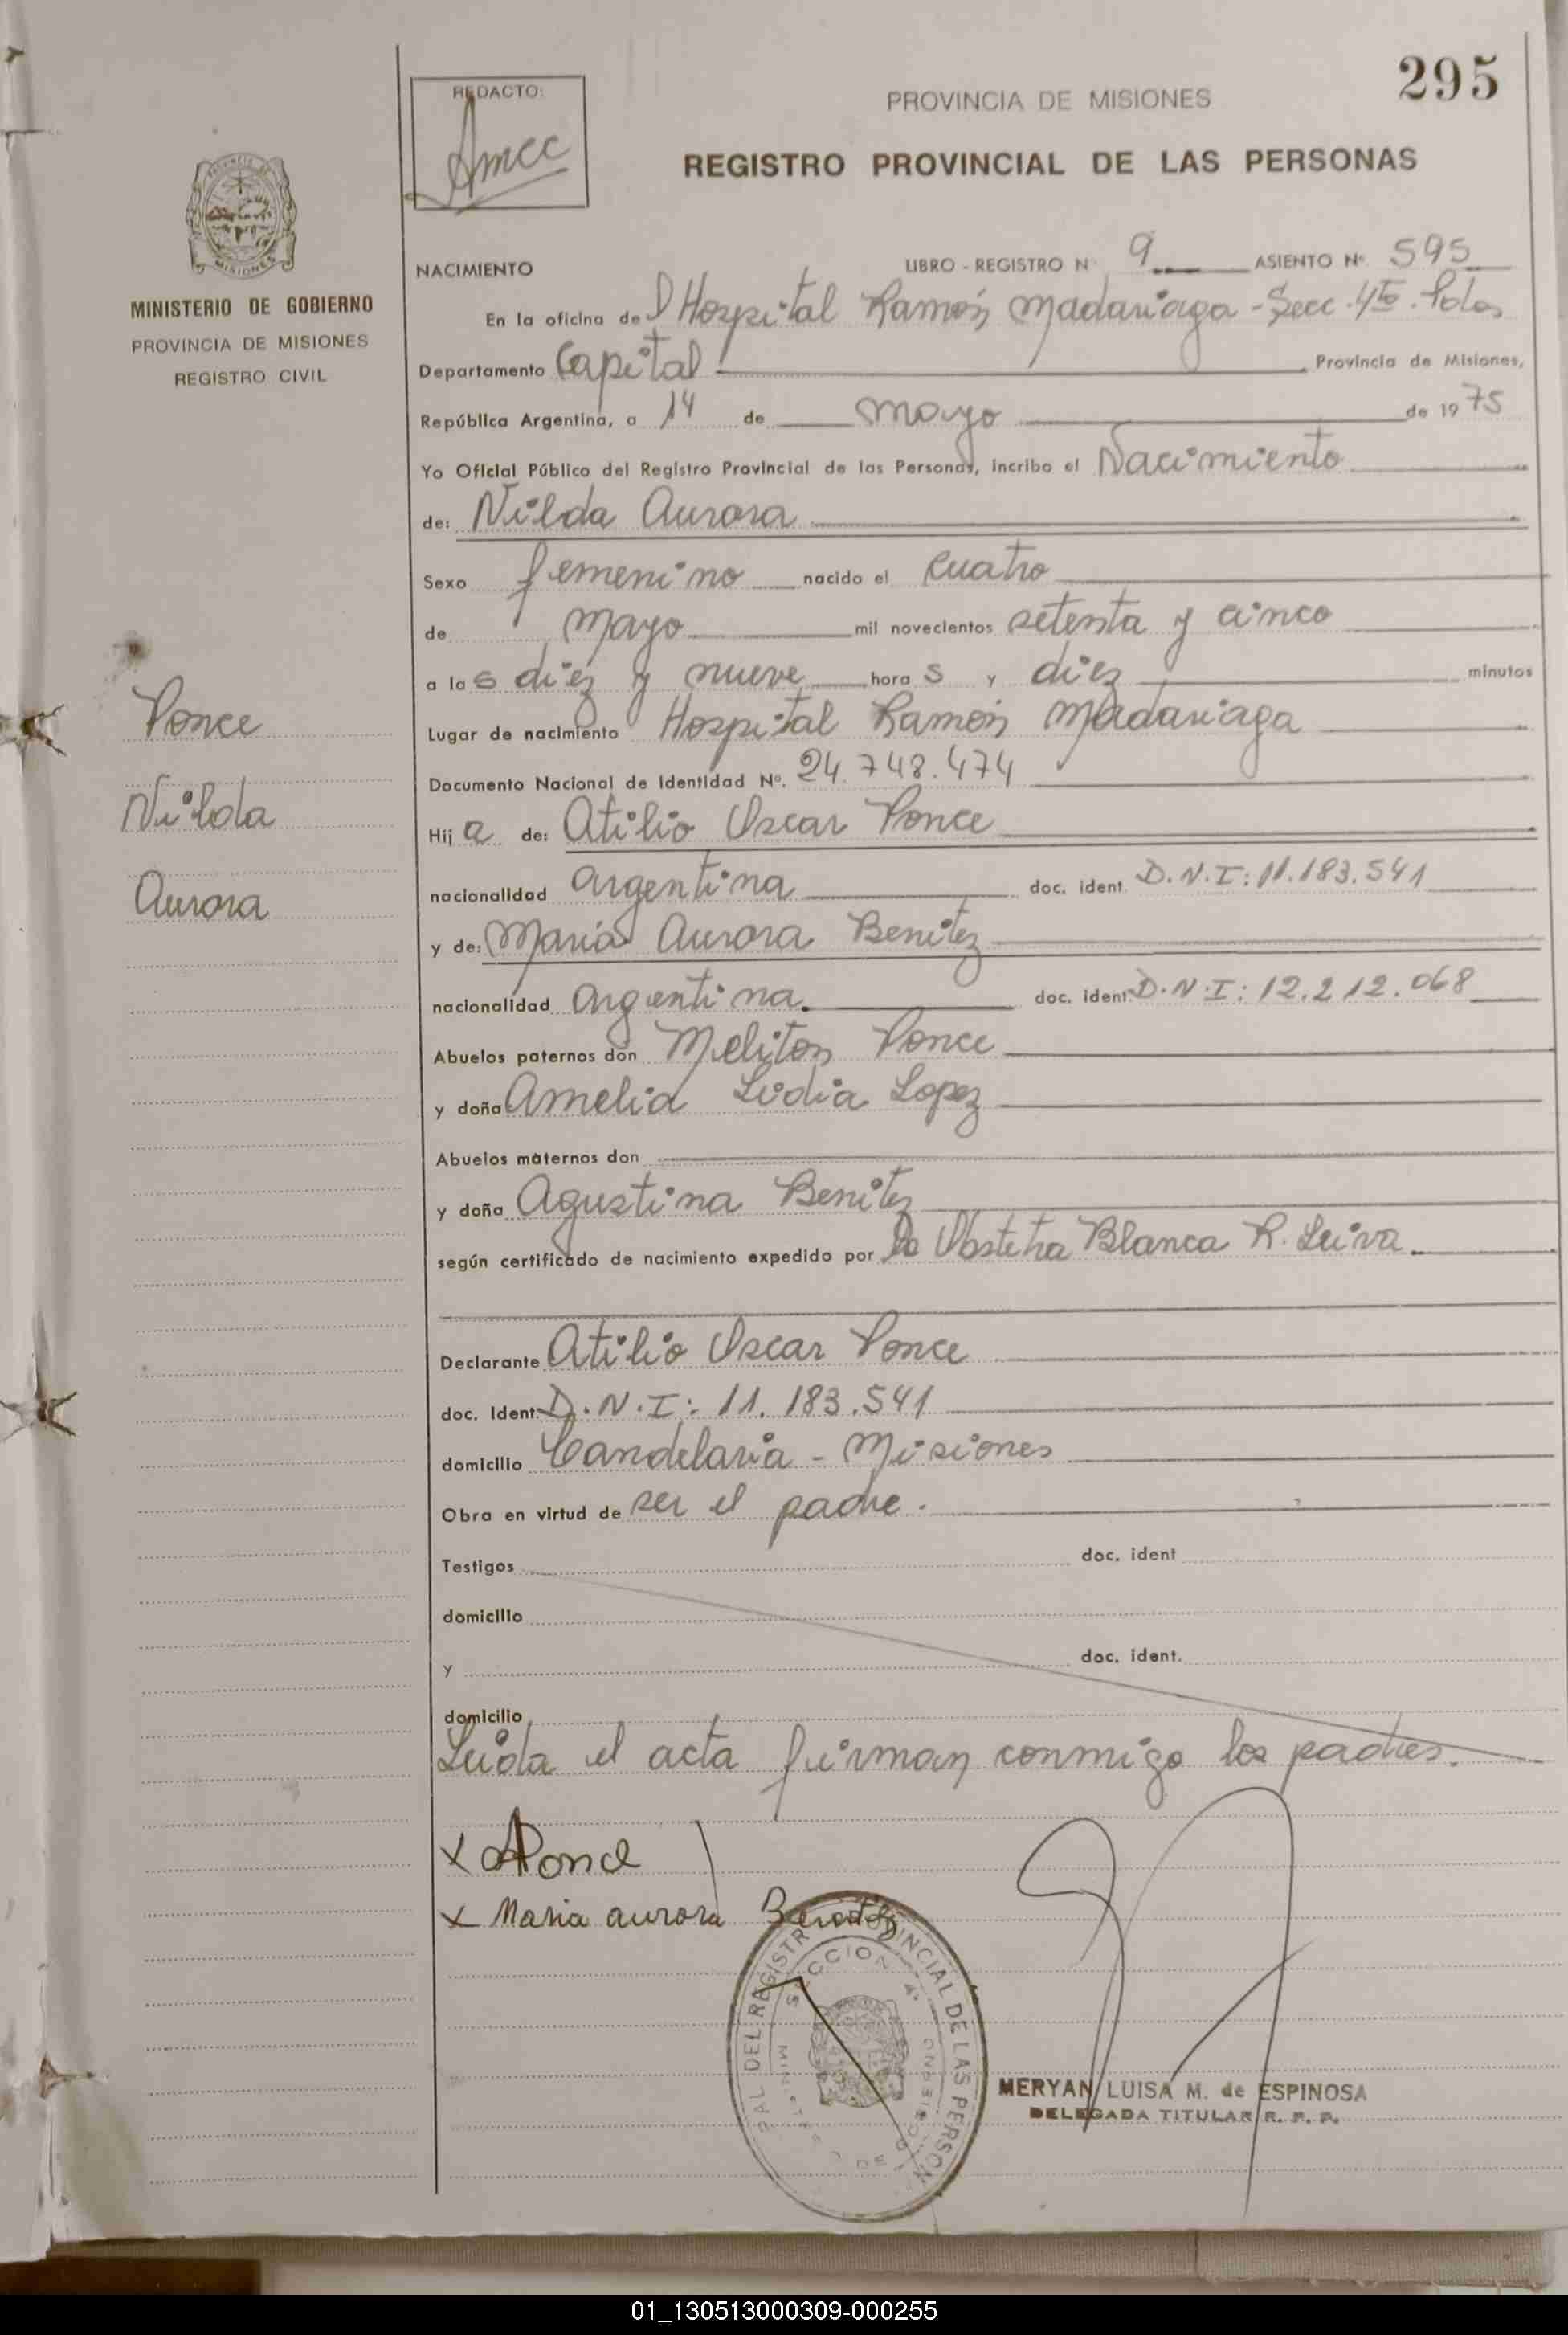 295
REDACTO:
Amcc
PROVINCIA DE MISIONES
REGISTRO PROVINCIAL DE LAS PERSONAS
MISIONES
MINISTERIO DE GOBIERNO
PROVINCIA DE MISIONES
REGISTRO CIVIL
NACIMIENTO LIBRO - REGISTRO Nº 9 ASIENTO Nº. 595
En la oficina del Hospital Ramón Madariaga - Secc. 4ta. Pdas
Departamento Capital Provincia de Misiones,
República Argentina, a 14 de mayo de 1975
Yo Oficial Público del Registro Provincial de las Personas, incribo el Nacimiento
de: Nilda Aurora
Sexo femenino nacido el cuatro
de mayo mil novecientos setenta y cinco
a las diez y nueve horas y diez minutos
Lugar de nacimiento Hospital Ramón Madariaga
Documento Nacional de Identidad Nº. 24.748.474
Hija de: Atilio Oscar Ponce
nacionalidad argentina doc. ident. D.N.I: 11.183.541
y de: María Aurora Benitez
nacionalidad argentina. doc. ident. D.N.I: 12.212.068
Abuelos paternos don Meliton Ponce
y doña Amelia Lidia Lopez
Abuelos maternos don
y doña Agustina Benitez
según certificado de nacimiento expedido por la Obstetra Blanca R. Leiva.
Declarante Atilio Oscar Ponce
doc. Ident. D.N.I: 11.183.541
domicilio Candelaria - Misiones
Obra en virtud de ser el padre.
Testigos doc. ident
domicilio
y doc. ident.
domicilio
Leida el acta firman conmigo los padres.
Ponce
Nilda
Aurora
x APonce
x Maria aurora Benitez
DEL REGISTRO PROVINCIAL DE LAS PERSON
SECCION
MERYAN LUISA M. de ESPINOSA
DELEGADA TITULAR R. P. P.
01_130513000309-000255